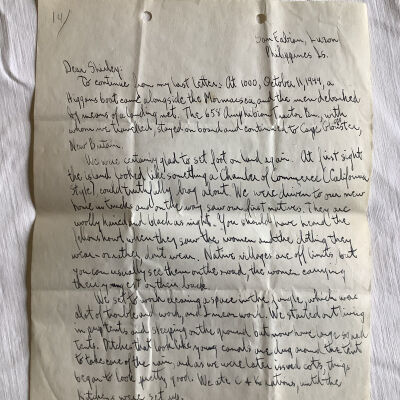 14/
San Fabian, Luzon
Philippines Is.
Dear Shirley:
To continue from my last letter: At 1000, October 11, 1944, a
Higgins boat came alongside the Mormacsea, and the men debarked
by means of a landing net. The 658 Amphibian Tractor Bn, with
whom we travelled, stayed on board and continued to Cape Gloucester,
New Britain.
We were certainly glad to set foot on land again. At first sight
the island looked like something a Chamber of Commerce (California
style) could truthfully brag about. We were driven to our new
home in trucks and on the way saw our first natives. They are
woolly haired and black as night. You should have heard the
fellows howl when they saw the women and the clothing they
wear - or they don't wear. Native villages are off limits but
you can usually see them on the road, the women carrying
their young or on their back.
We set to work clearing a space in the jungle, which was
alot of trouble and work and I mean work. We started out using
in pup tents and sleeping on the ground but now use large squad
tents. Ditches that look like young canals are dug around the tents
to take care of the rain, and as we were later issued cots, things
began to look pretty good. We ate C & K rations, until the
kitchens were set up.